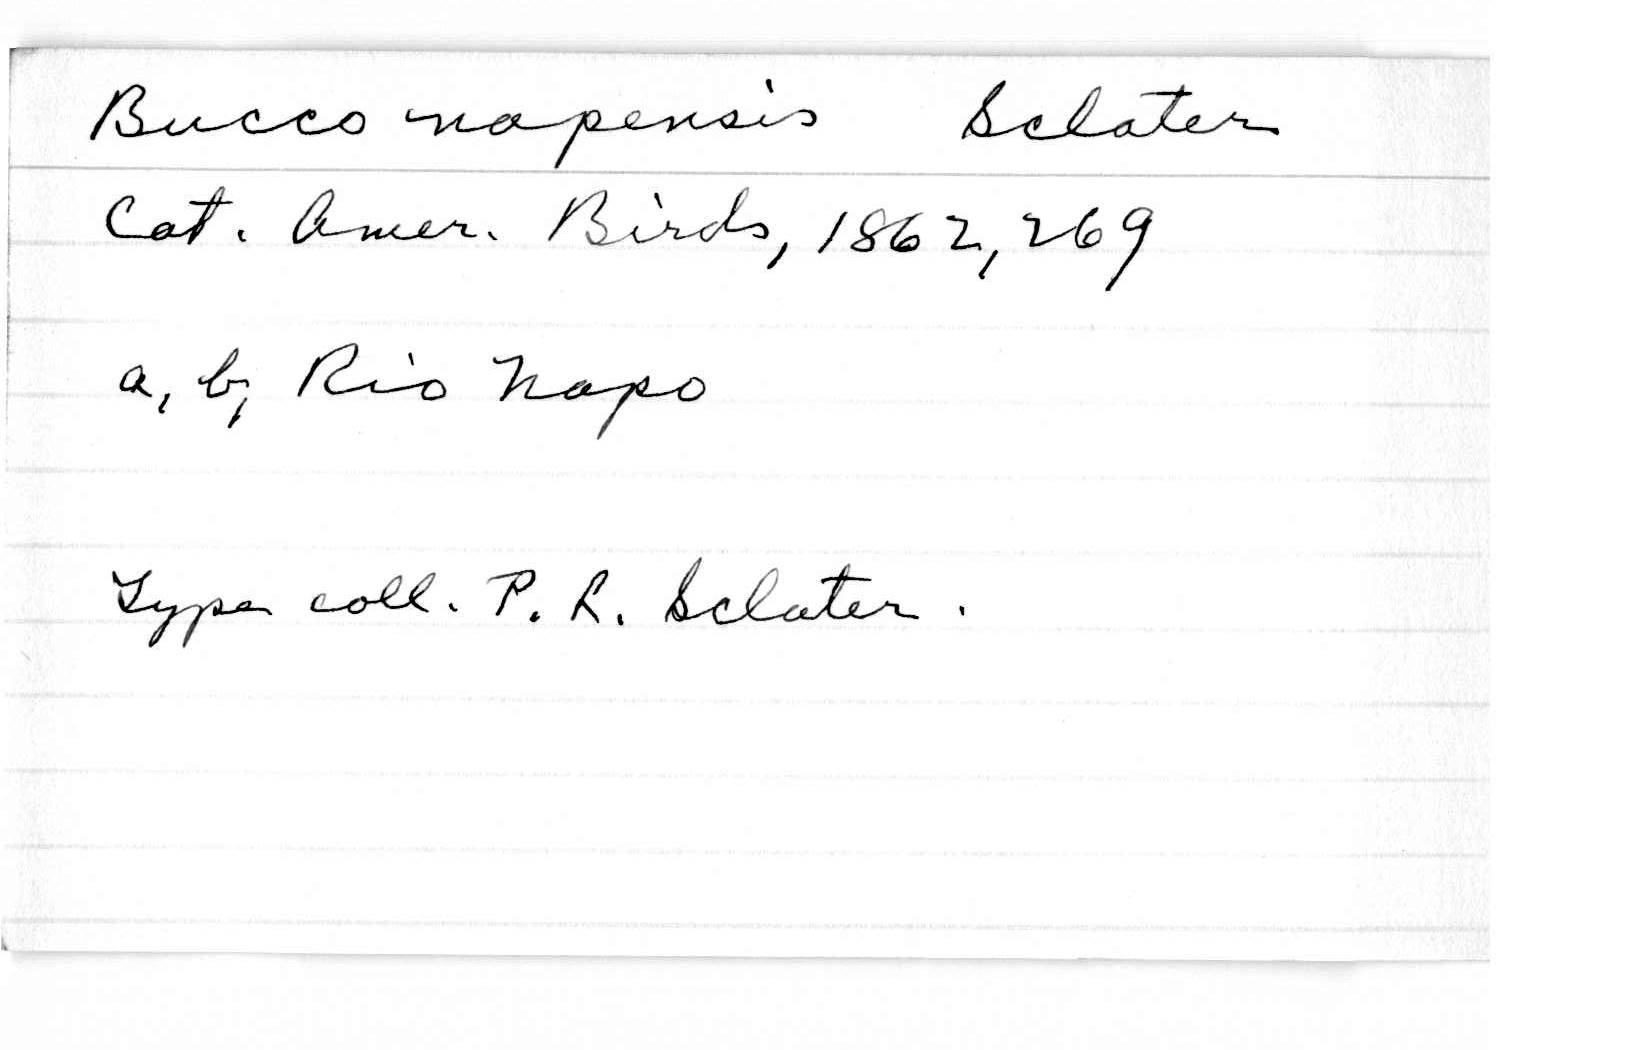 Bucco napensis Sclater
Cat. Amer. Birds, 1862, 269
a, b, Rio Napo
Type coll. P. R. Sclater.